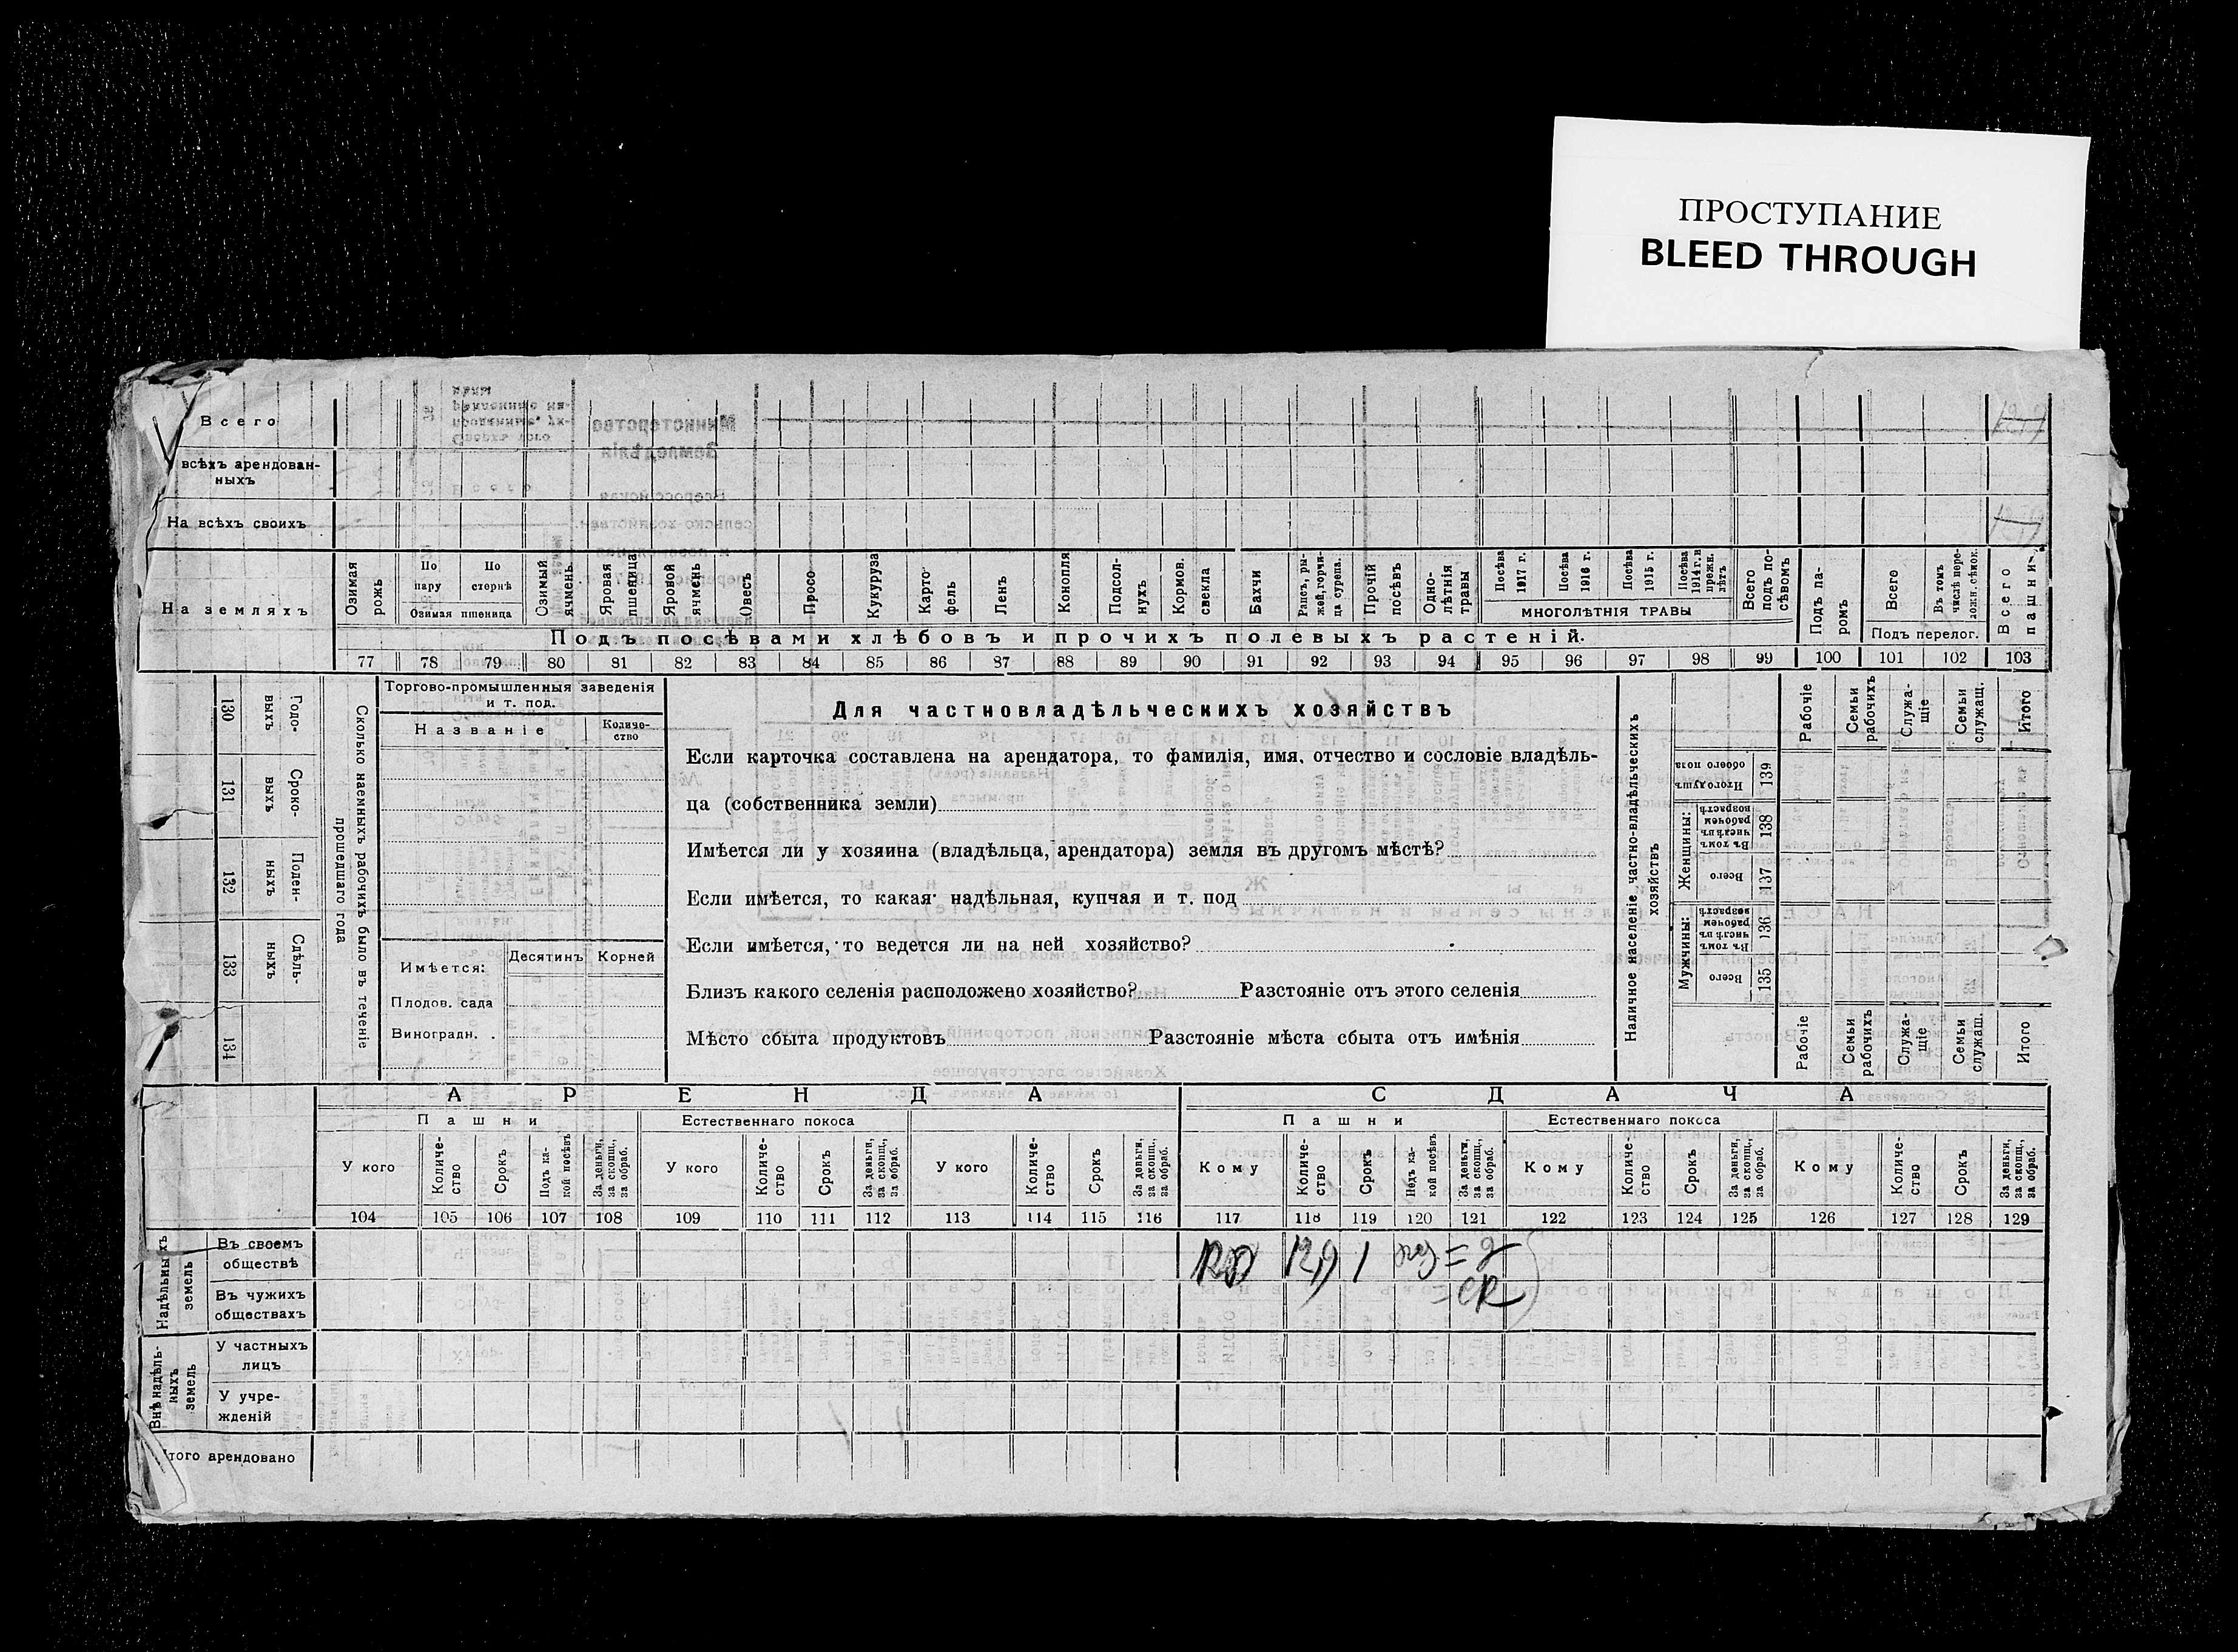 ПРОСТУПАНИЕ
BLEED THROUGH
Всего
всѣхъ арендован-
ныхъ
На всѣхъ своихъ
На земляхъ
Озимая рожь
По пару
По стернѣ
Озимая пшеница
Озимый ячмень
Яровая пшеница
Яровой ячмень
Овесъ
Просо
Кукуруза
Карто-
фель
Ленъ
Конопля
Подсол-
нухъ
Кормов. свекла
Бахчи
Рапсъ, ры-
жей, горчи-
ца сурепа.
Прочій посѣвъ
Одно-
лѣтнія травы
Посѣва 1917 г.
Посѣва 1916 г.
Посѣва 1915 г.
Посѣва 1914 г. и прежн. лѣтъ
МНОГОЛѢТНІЯ ТРАВЫ
Всего подъ по-
сѣвомъ
Подъ па-
ромъ
Всего
Въ томъ числѣ пере-
ложн. сѣнок.
Подъ перелог.
Всего пашни
Подъ посѣвами хлѣбовъ и прочихъ полевыхъ растеній.
77 78 79 80 81 82 83 84 85 86 87 88 89 90 91 92 93 94 95 96 97 98 99 100 101 102 103
130 Годо-
выхъ
131 Сроко-
выхъ
132 Поден-
ныхъ
133 Сдѣль-
ныхъ
134
Сколько наемныхъ рабочихъ было въ теченіе
прошедшаго года
Торгово-промышленныя заведенія
и т. под.
Названіе
Количе-
ство
Имѣется:
Десятинъ
Корней
Плодов. сада
Виноградн. .
Для частновладѣльческихъ хозяйствъ
Если карточка составлена на арендатора, то фамилія, имя, отчество и сословіе владѣль-
ца (собственника земли)
Имѣется ли у хозяина (владѣльца, арендатора) земля въ другомъ мѣстѣ?
Если имѣется, то какая надѣльная, купчая и т. под
Если имѣется, то ведется ли на ней хозяйство?
Близъ какого селенія расположено хозяйство? Разстояніе отъ этого селенія
Мѣсто сбыта продуктовъ Разстояніе мѣста сбыта отъ имѣнія
Наличное населеніе частно-владѣльческихъ
хозяйствъ
Рабочіе
Семьи рабочихъ
Служа-
щіе
Семьи служащ.
Итого
Итого душъ обоего пола 139
Женщины:
Въ томъ числѣ въ рабочемъ возрастѣ 138
Всего 137
Мужчины:
Въ томъ числѣ въ рабочемъ возрастѣ 136
Всего 135
Рабочіе
Семьи рабочихъ
Служа-
щіе
Семьи служащ.
Итого
АРЕНДА
СДАЧА
Пашни
Естественнаго покоса
Пашни
Естественнаго покоса
У кого
Количе-
ство
Срокъ
Подъ ка-
кой посѣвъ
За деньги, за скопщ., за обраб.
У кого
Количе-
ство
Срокъ
За деньги, за скопщ., за обраб.
У кого
Количе-
ство
Срокъ
За деньги, за скопщ., за обраб.
Кому
Количе-
ство
Срокъ
Подъ ка-
кой посѣвъ
За деньги, за скопщ., за обраб.
Кому
Количе-
ство
Срокъ
За деньги, за скопщ., за обраб.
Кому
Количе-
ство
Срокъ
За деньги, за скопщ., за обраб.
104 105 106 107 108 109 110 111 112 113 114 115 116 117 118 119 120 121 122 123 124 125 126 127 128 129
Надѣльныхъ земель
Въ своемъ
обществѣ
12,9 1
Въ чужихъ
обществахъ
Внѣ надѣль-
ныхъ земель
У частныхъ
лицъ
У учре-
жденій
Итого арендовано